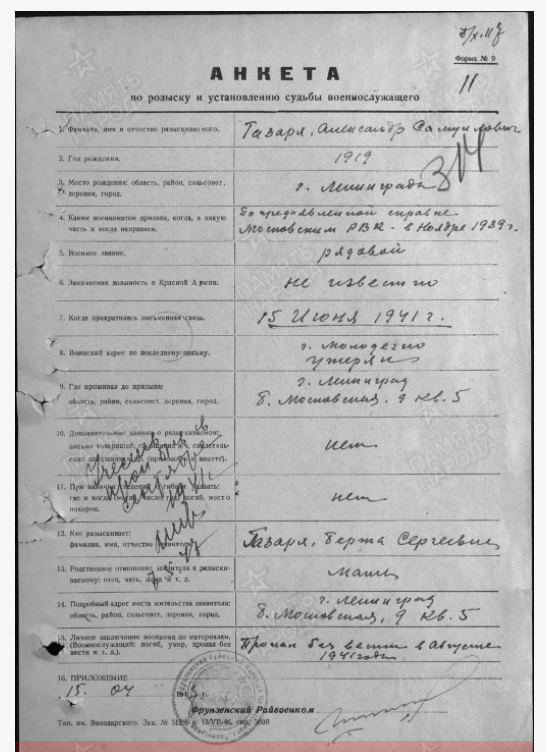 Форма № 9
11
АНКЕТА
по розыску и установлению судьбы военнослужащего
1. Фамилия, имя и отчество разыскиваемого.
Газаря, Александр Самуилович
2. Год рождения.
1919
3. Место рождения: область, район, сельсовет, деревня, город.
г. Ленинграда
4. Каким военкоматом призван, когда, в какую часть и когда направлен.
По предъявленной справке
Московским РВК - в Ноябре 1939 г.
5. Военное звание.
рядовой
6. Занимаемая должность в Красной Армии.
не известно
7. Когда прекратилась письменная связь.
15 Июня 1941 г.
8. Воинский адрес по последнему письму.
г. Молодечно
утерян
9. Где проживал до призыва:
область, район, сельсовет, деревня, город.
г. Ленинград
Б. Московская, 9 кв. 5
10. Дополнительные данные о разыскиваемом:
письма товарищей, сообщения и свидетельские
(приложить к анкете).
нет
11. При наличии сведений о гибели указать:
где и когда (месяц, число, год) погиб, место
похорон.
нет
12. Кто разыскивает:
фамилия, имя, отчество заявителя.
Газаря, Берта Сергеевна
13. Родственное отношение заявителя к разыскиваемому: отец, мать, жена и т. д.
Мать
14. Подробный адрес места жительства заявителя:
область, район, сельсовет, деревня, город.
г. Ленинград
Б. Московская, 9 кв. 5
15. Личное заключение военкома по материалам.
(Военнослужащий: погиб, умер, пропал без
вести и т. д.).
Пропал без вести в Августе
1941 года.
16. ПРИЛОЖЕНИЕ
15. 04
Фрунзенский Райвоенком
Тип. им. Володарского. Зак. №